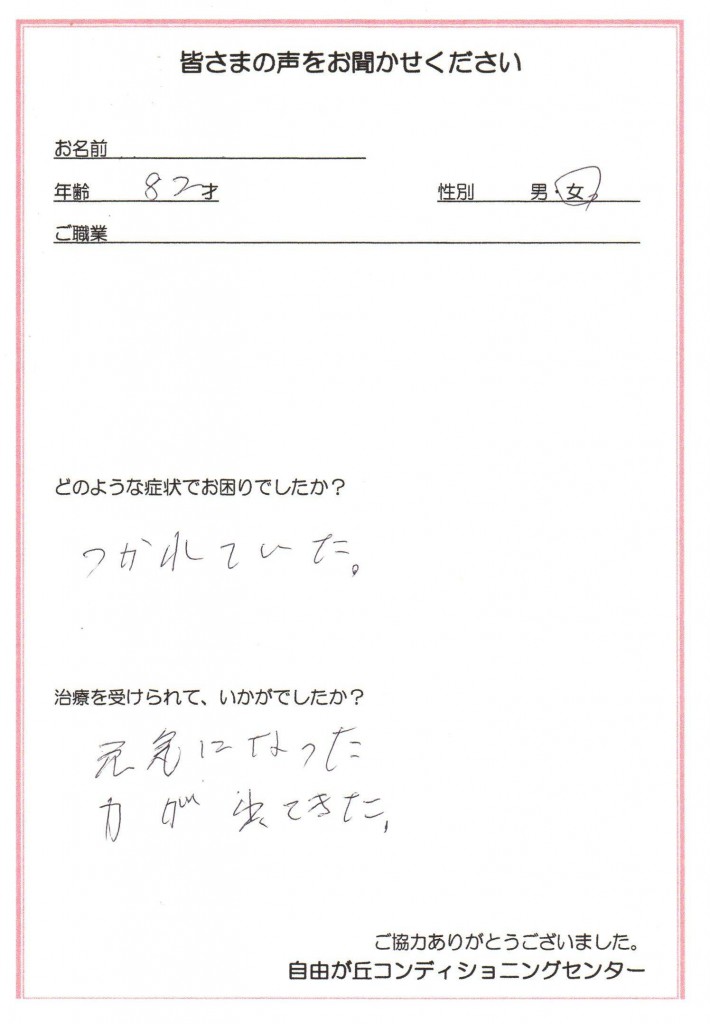 皆さまの声をお聞かせください
お名前
年齢 82才
性別 男・女
ご職業
どのような症状でお困りでしたか？
つかれていた。
治療を受けられて、いかがでしたか？
元気になった
力が出てきた。
ご協力ありがとうございました。
自由が丘コンディショニングセンター